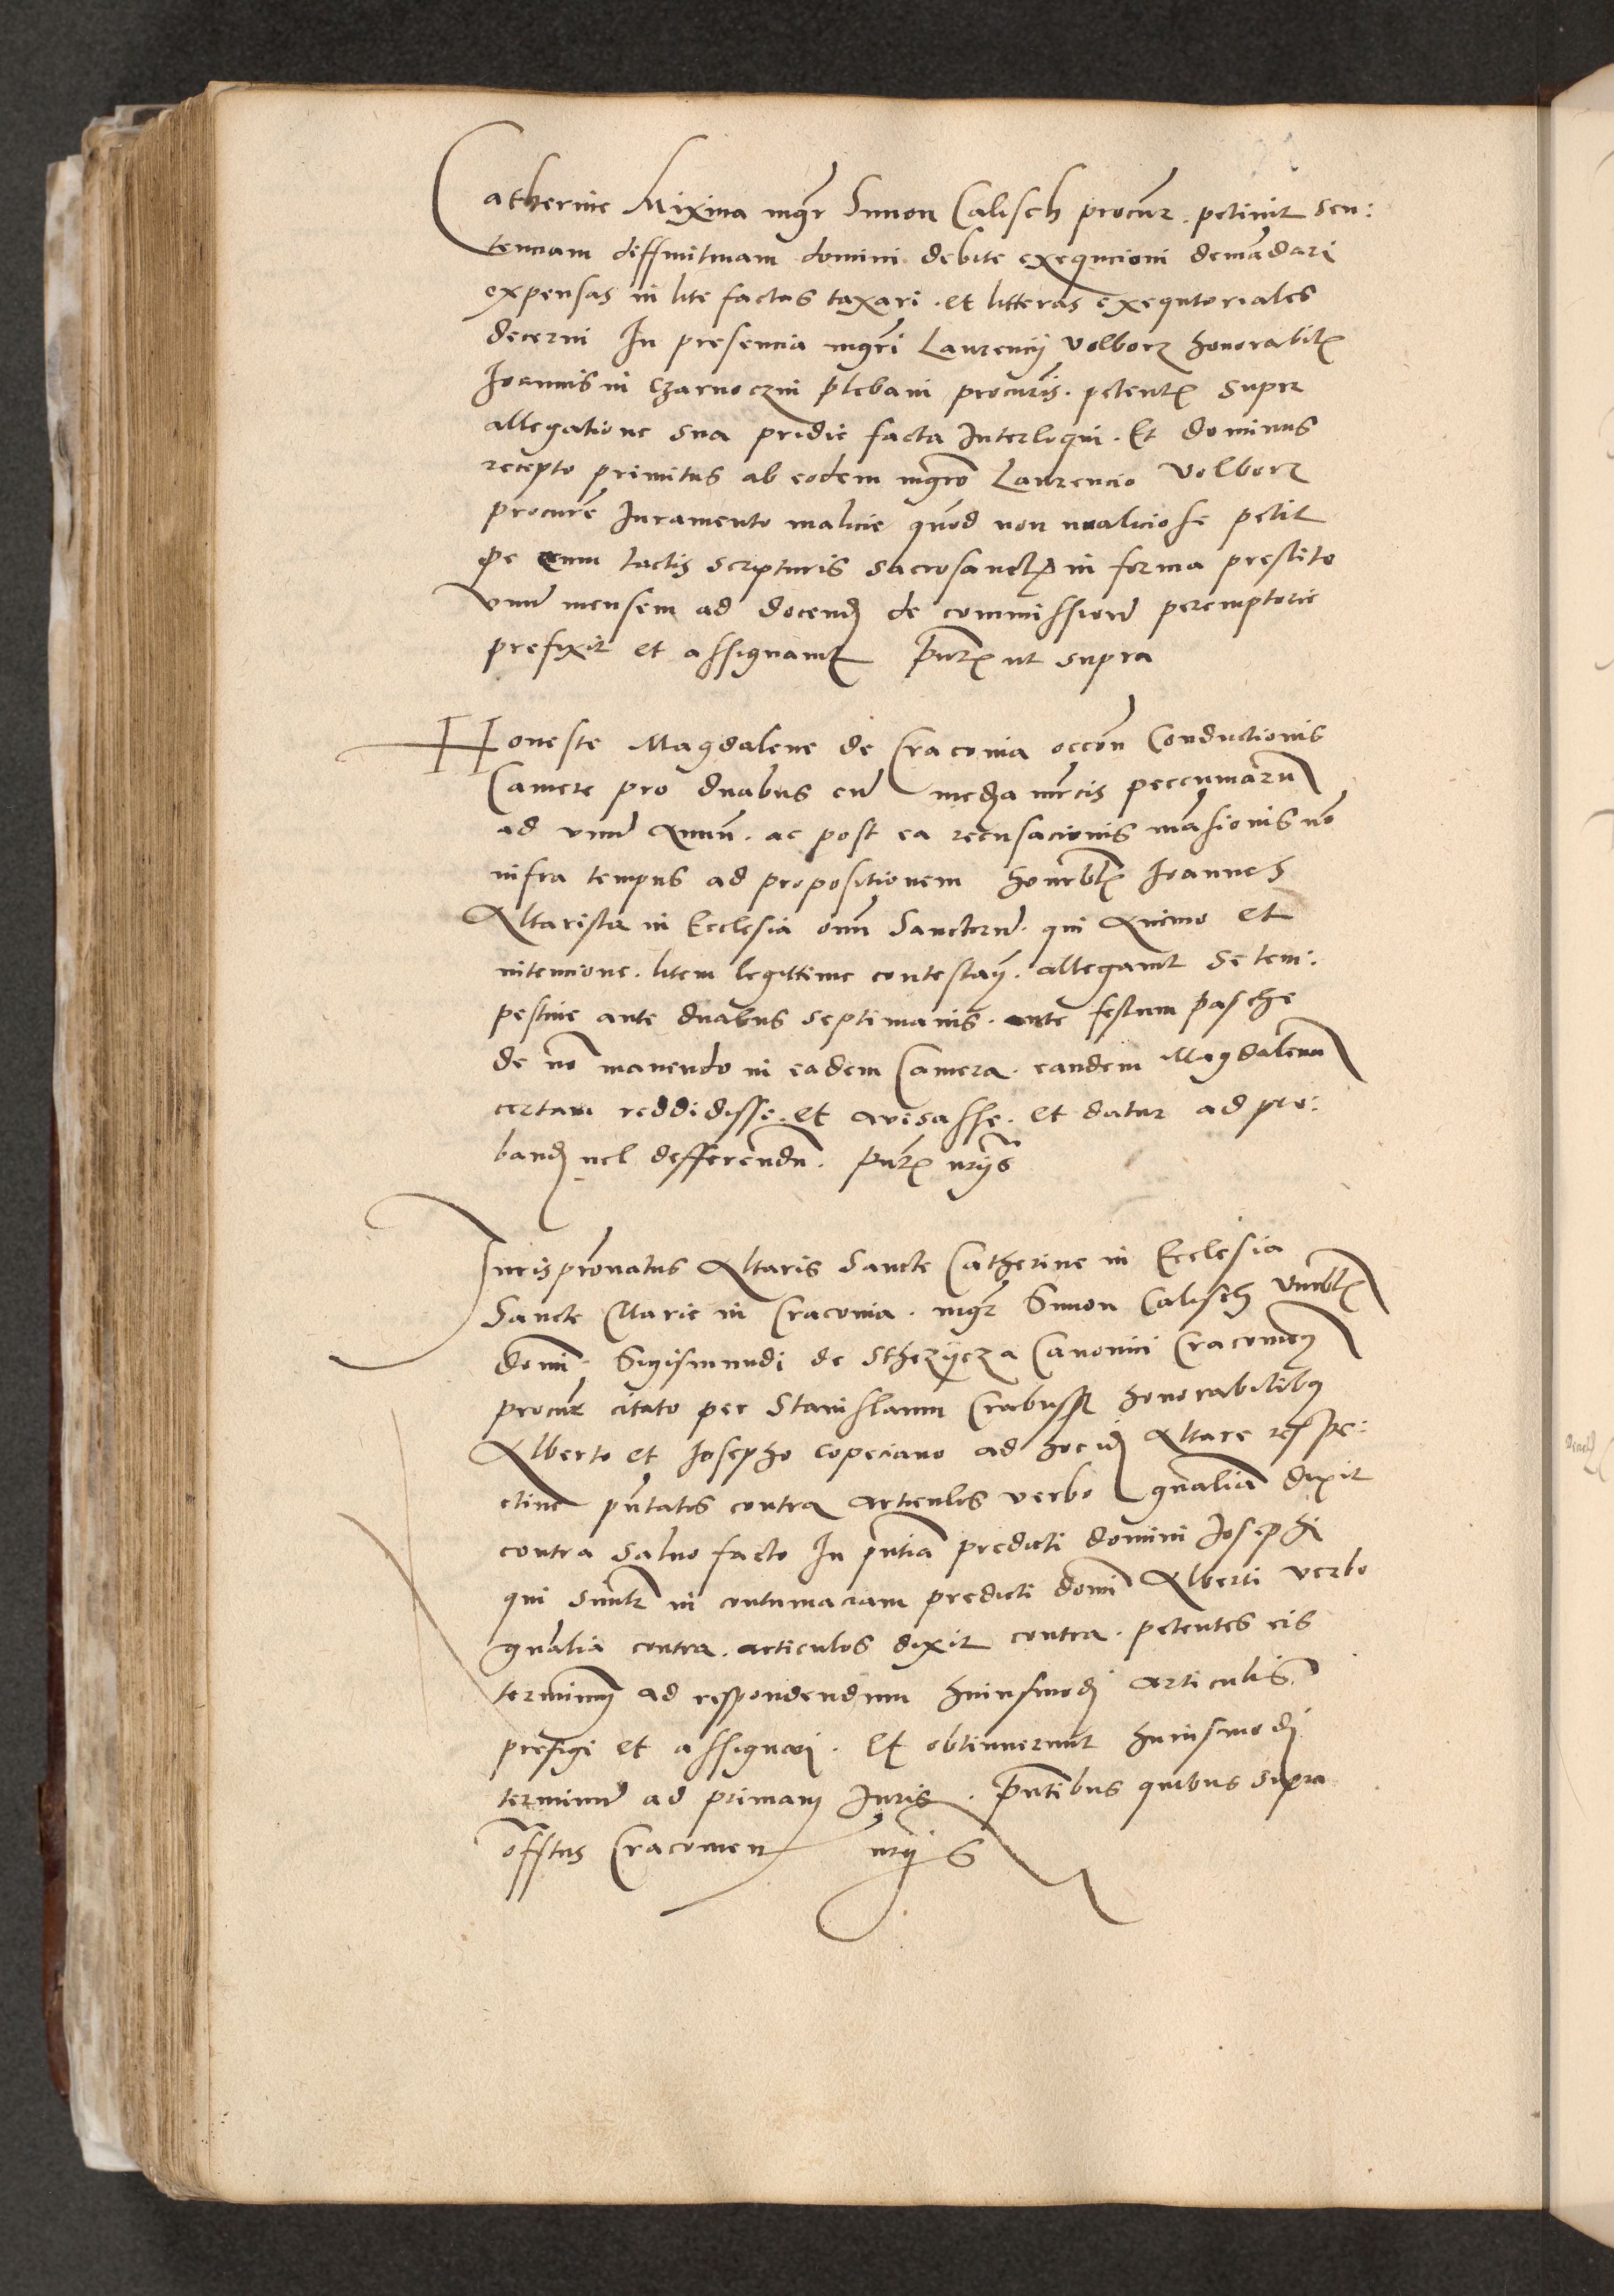 Catherine Mixina mgr Simon Calisch procur. petiuit sen:
tenciam diffinitiuam domini debite exequcioni demandari
expensas in lite factas taxari. et litteras exequtoriales
decerni In presencia mgri Laurencij Volborz honorabil
Ioannis in Czarnoczin plebani procuris. petent super
allegatione sua pridie facta Interloqui. Et dominus
recepto primitus ab eodem mgro Laurencio Volborz
procure Iuramento malicie quod non maliciose petit
per eum tactis scripturis sacrosanct in forma prestito
vnum mensem ad docend de commissione peremptorie
prefixit et assignauit pntt ut supra
Honeste Magdalene de Cracouia occon Conductionis
Camere pro duabus cum media mrcis peccuniarum
ad vnum Annum. ac post ea recusacionis mansionis non
infra tempus ad propositionem honrbl Ioannes
Altarista in Ecclesia omn Sanctorum. qui Animo et
intencione. litem legittime contestan. allegauit se tem:
pestiue ante duabus septimanis. ante festum pasche
de non manendo in eadem Camera. eandem Magdalenam
certam reddidisse. et avisasse. et datur ad pro:
band uel defferendum. pntt
Iurispronatus Altaris Sancte Catherine in Ecclesia
Sancte Marie in Cracouia. mgr Simon Calisch Vnrbl
domi Sigismundi de Sthezycza Canonici Cracouien
procur citato per Stanislaum Crabussz honorabilibus
Alberto et Iosepho Copeciano ad hoc id Altare respe:
ctiue pntatis contra articulos verbo gnalia dixit
contra saluo facto In pntia predicti domini Iosephi
qui simlr in contumaciam predicti domi Alberti verbo
gnalia contra. articulos dixit contra. petentes eis
terminum ad respondendum huiusmodi articulis
prefigi et assignari. Et obtinuerunt huiusmodi
terminum ad primam Iuris. pntibus quibus supra
Cracouien